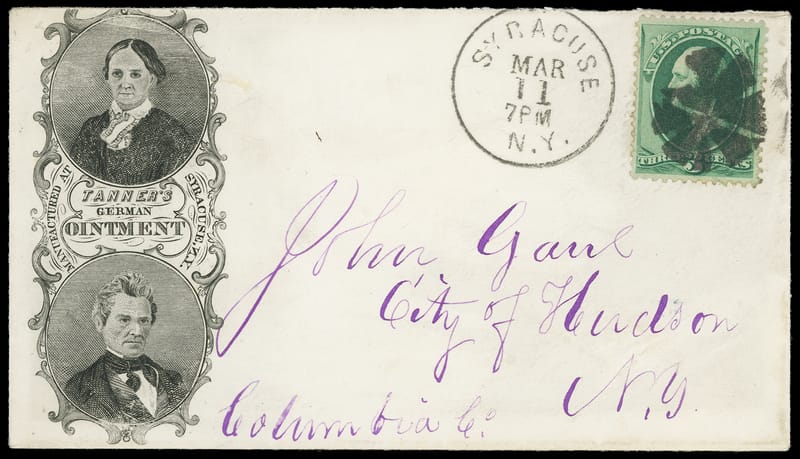 MANUFACTURED AT
TANNER'S
GERMAN
OINTMENT
SYRACUSE. N.Y.
SYRACUSE
MAR
11
7PM
N.Y.
U.S. POSTAGE
THREE CENTS
3
John Gaul
City of Hudson
N.Y.
Columbia Co.